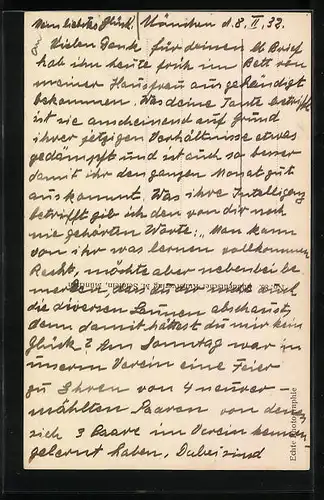 Mein liebstes Glück! München d. 8. II. 32.
Vielen Dank für deinen lb. Brief
hab ihn heute früh im Bett von
meiner Hausfrau ausgehändigt
bekommen. Was deine Tante betrifft
ist sie anscheinend auf Grund
ihrer jetzigen Verhältnisse etwas
gedämpft und ist auch so besser
damit ihr den ganzen Monat gut
auskommt. Was ihre Intelligenz
betrifft gib ich den von dir noch
nie gehörten Worte: „Man kann
von ihr was lernen vollkommen
Recht, möchte aber nebenbei be
merken, das du ihr nicht auch
die diversen Launen abschaust,
denn damit hättest du mir kein
Glück? Am Sonntag war in
unserm Verein eine Feier
zu Ehren von 4 neuver-
mählten Paaren von denen
sich 3 Paare im Verein kennen
gelernt haben. Dabei sind
Echte Photographie